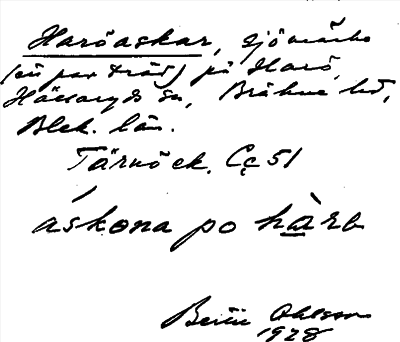 Haröaskar, sjömärke
(en par träd) på Harö,
Hällaryds sn, Bräkne hd,
Blek. län.
Tärnö ek. Cc 51
áskona po hàrö
Bertil Ohlsson
1928